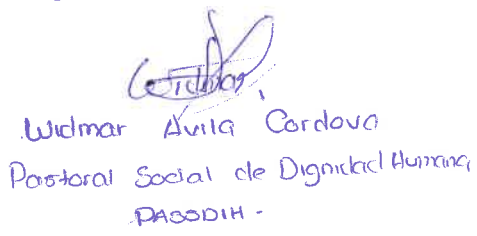 Widmar Avila Cordova
Pastoral Social de Dignidad Humana
PASSDIH -